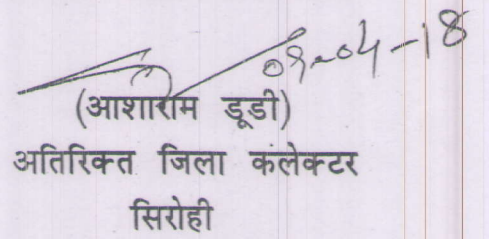 09-04-18
(आशाराम डूडी)
अतिरिक्त जिला कलेक्टर
सिरोही